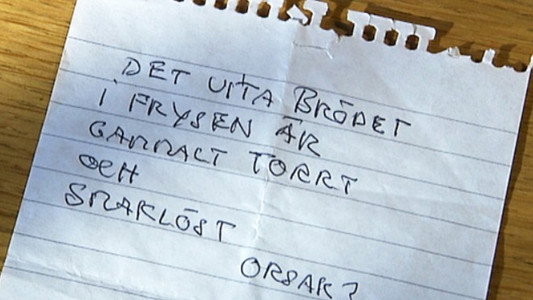 DET VITA BRÖDET
I FRYSEN ÄR
GAMMALT TORRT
OCH
SMAKLÖST
ORSAK?